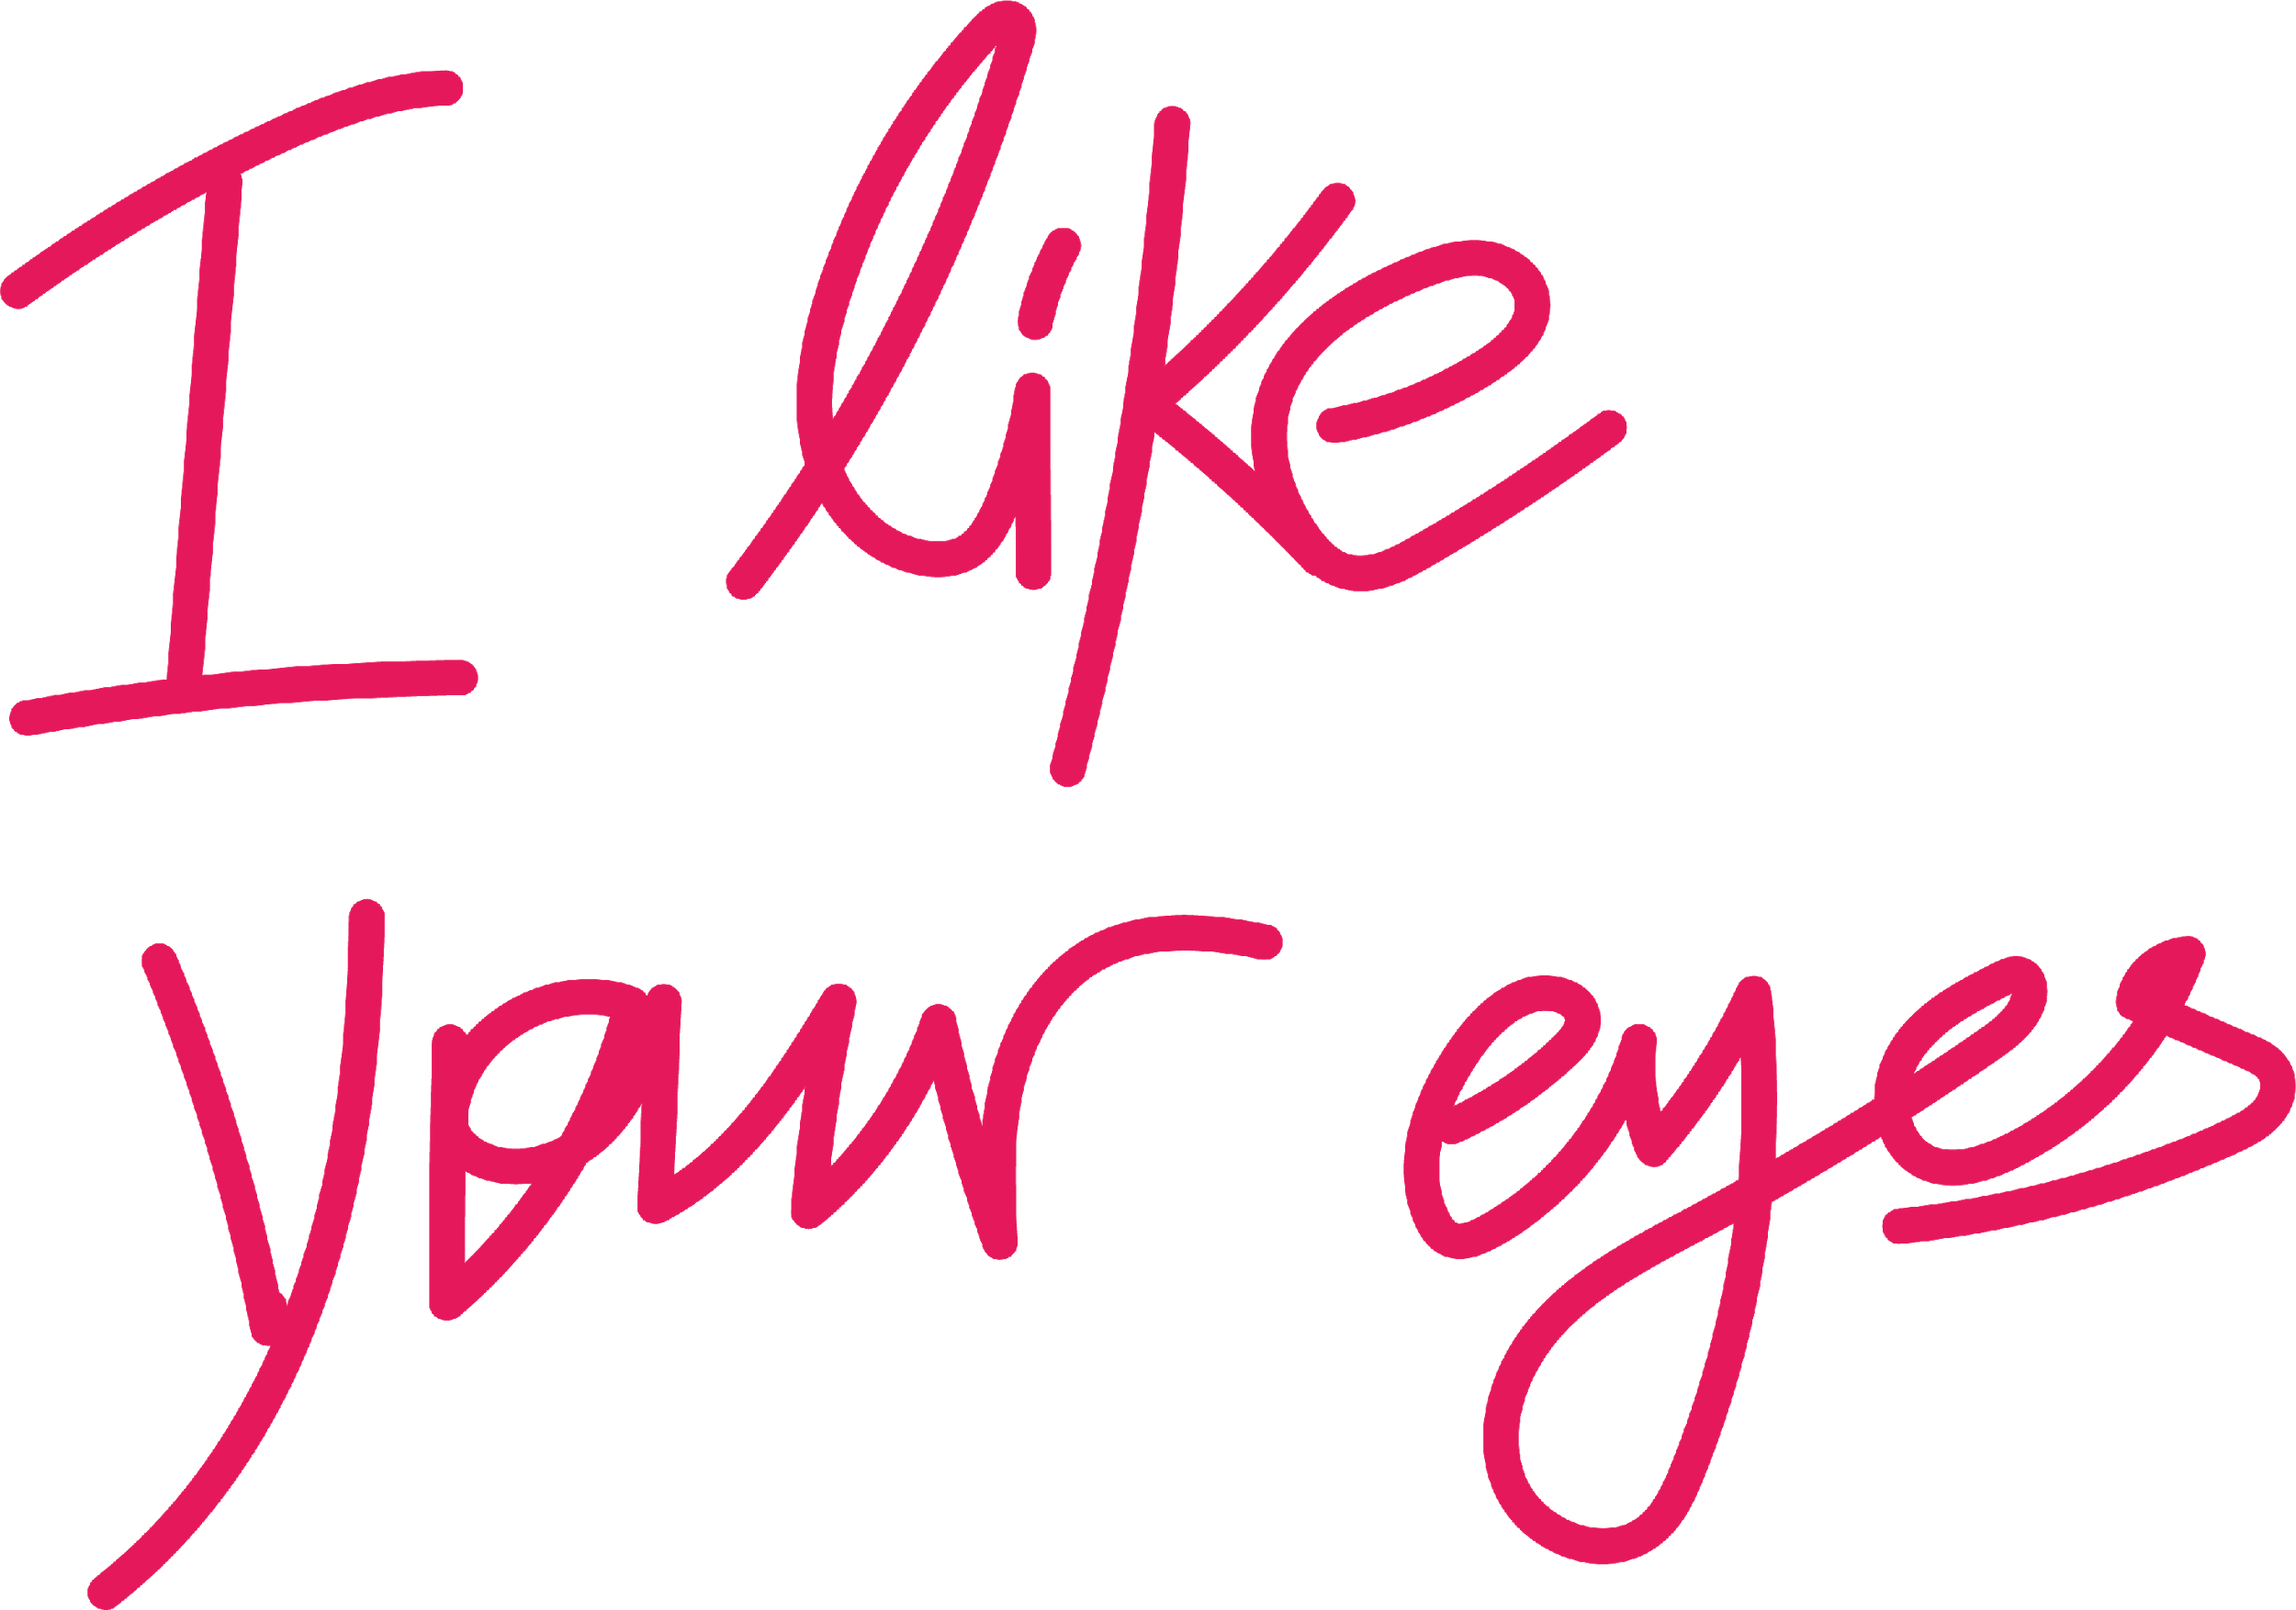 I like
your eyes